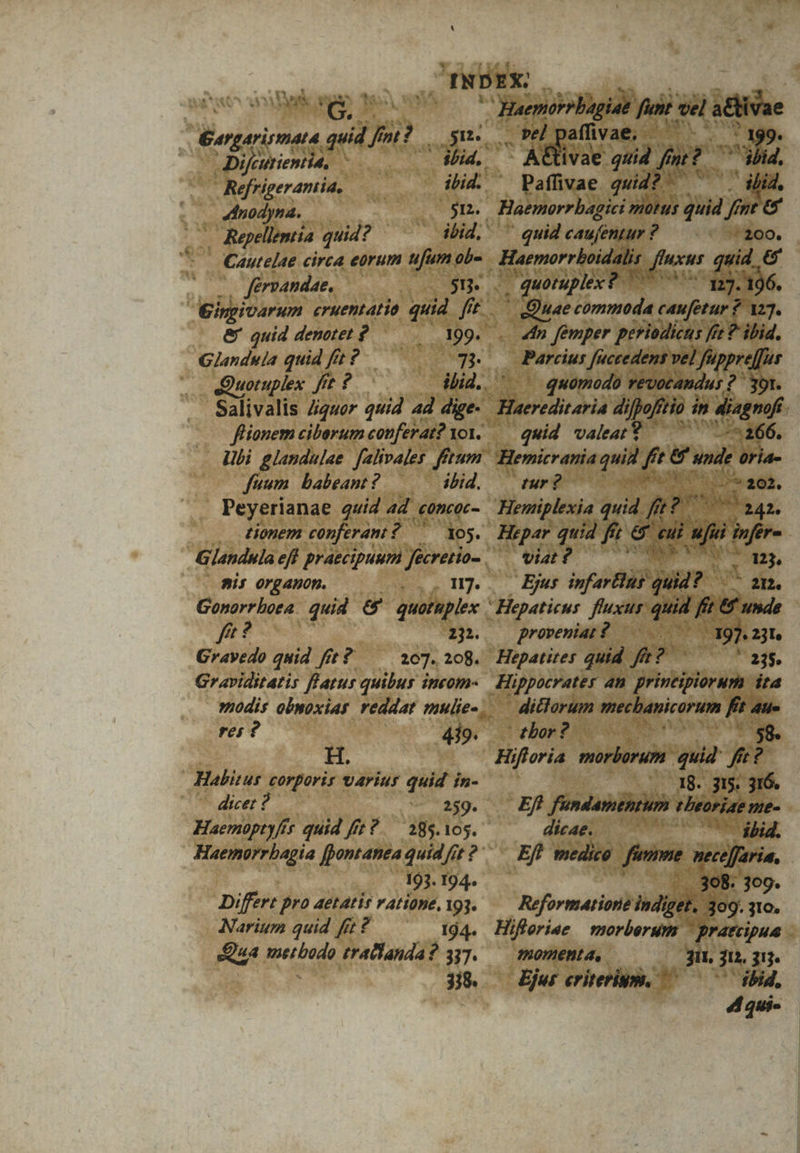 INDEX.
G.
Gargarismata quid ſint? 512.
Diſcutientia. ibid.
Refrigerantia. ibid.
Anodyna. 512.
Repellentia quid? ibid.
Cautelae circa eorum uſum ob-
ſervandae. 513.
Gingivarum cruentatio quid ſit
& quid denotet? 199.
Glandula quid ſit? 73.
Quotuplex ſit? ibid.
Salivalis liquor quid ad dige-
ſtionem ciborum conferat? 101.
Ubi glandulae ſalivales ſitum
ſuum habeant? ibid.
Peyerianae quid ad concoc-
tionem conferant? 105.
Glandula eſt praecipuum ſecretio-
nis organon. 117.
Gonorrhoea quid & quotuplex
ſit? 232.
Gravedo quid ſit? 207. 208.
Graviditatis ſtatus quibus incom-
modis obnoxias reddat mulie-
res? 439.
H.
Habitus corporis varius quid in-
dicet? 259.
Haemoptyſis quid ſit? 285. 105.
Haemorrhagia ſpontanea quid ſit?
193. 194.
Differt pro aetatis ratione. 193.
Narium quid ſit? 194.
Qua methodo tractanda? 337.
338.
Haemorrhagiae ſunt vel activae
vel paſſivae. 199.
Activae quid ſint? ibid.
Paſſivae quid? ibid.
Haemorrhagici motus quid ſint &
quid cauſentur? 200.
Haemorrhoidalis fluxus quid &
quotuplex? 127. 196.
Quae commoda cauſetur? 127.
An ſemper periodicus ſit? ibid.
Parcius ſuccedens vel ſuppreſſus
quomodo revocandus? 391.
Haereditaria diſpoſitio in diagnoſi
quid valeat? 266.
Hemicrania quid ſit & unde oria-
tur? 202.
Hemiplexia quid ſit? 242.
Hepar quid ſit & cui uſui inſer-
viat? 123.
Ejus infarctus quid? 212.
Hepaticus fluxus quid ſit & unde
proveniat? 197. 231.
Hepatites quid ſit? 235.
Hippocrates an principiorum ita
dictorum mechanicorum ſit au-
thor? 58.
Hiſtoria morborum quid ſit?
18. 315. 316.
Eſt fundamentum theoriae me-
dicae. ibid.
Eſt medico ſumme neceſſaria.
308. 309.
Reformatione indiget. 309. 310.
Hiſtoriae morborum praecipua
momenta. 311. 312. 313.
Ejus criterium. ibid.
A qui-